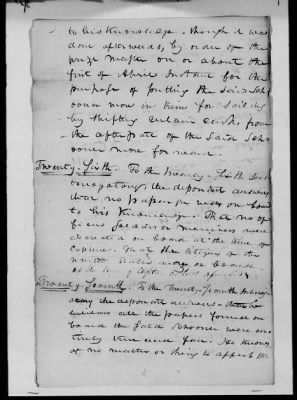 to his Knowledge - though it was
done afterwards, by order of the
prize master on or about the
first of April Instant for the
purpose of putting the said Sch
ooner more in trim for Sailing
by shifting certain casks from
the after part of the Said Sch
ooner more forward.
Twenty-Sixth. To the Twenty-Sixth Int
erogatory, the deponent answers
that no passenger were on board
to his Knowledge. That no of
ficers Soldiers or mariners were
on board at the time of
Capture. That the
United States more on board
at the time of
Twenty-Seventh. To the Twenty-Seventh Interog
atory the deponent answers - that he
believes all the papers found on
board the said Schooner were en
tirely true and fair. He knows
of no matter or thing to affect the